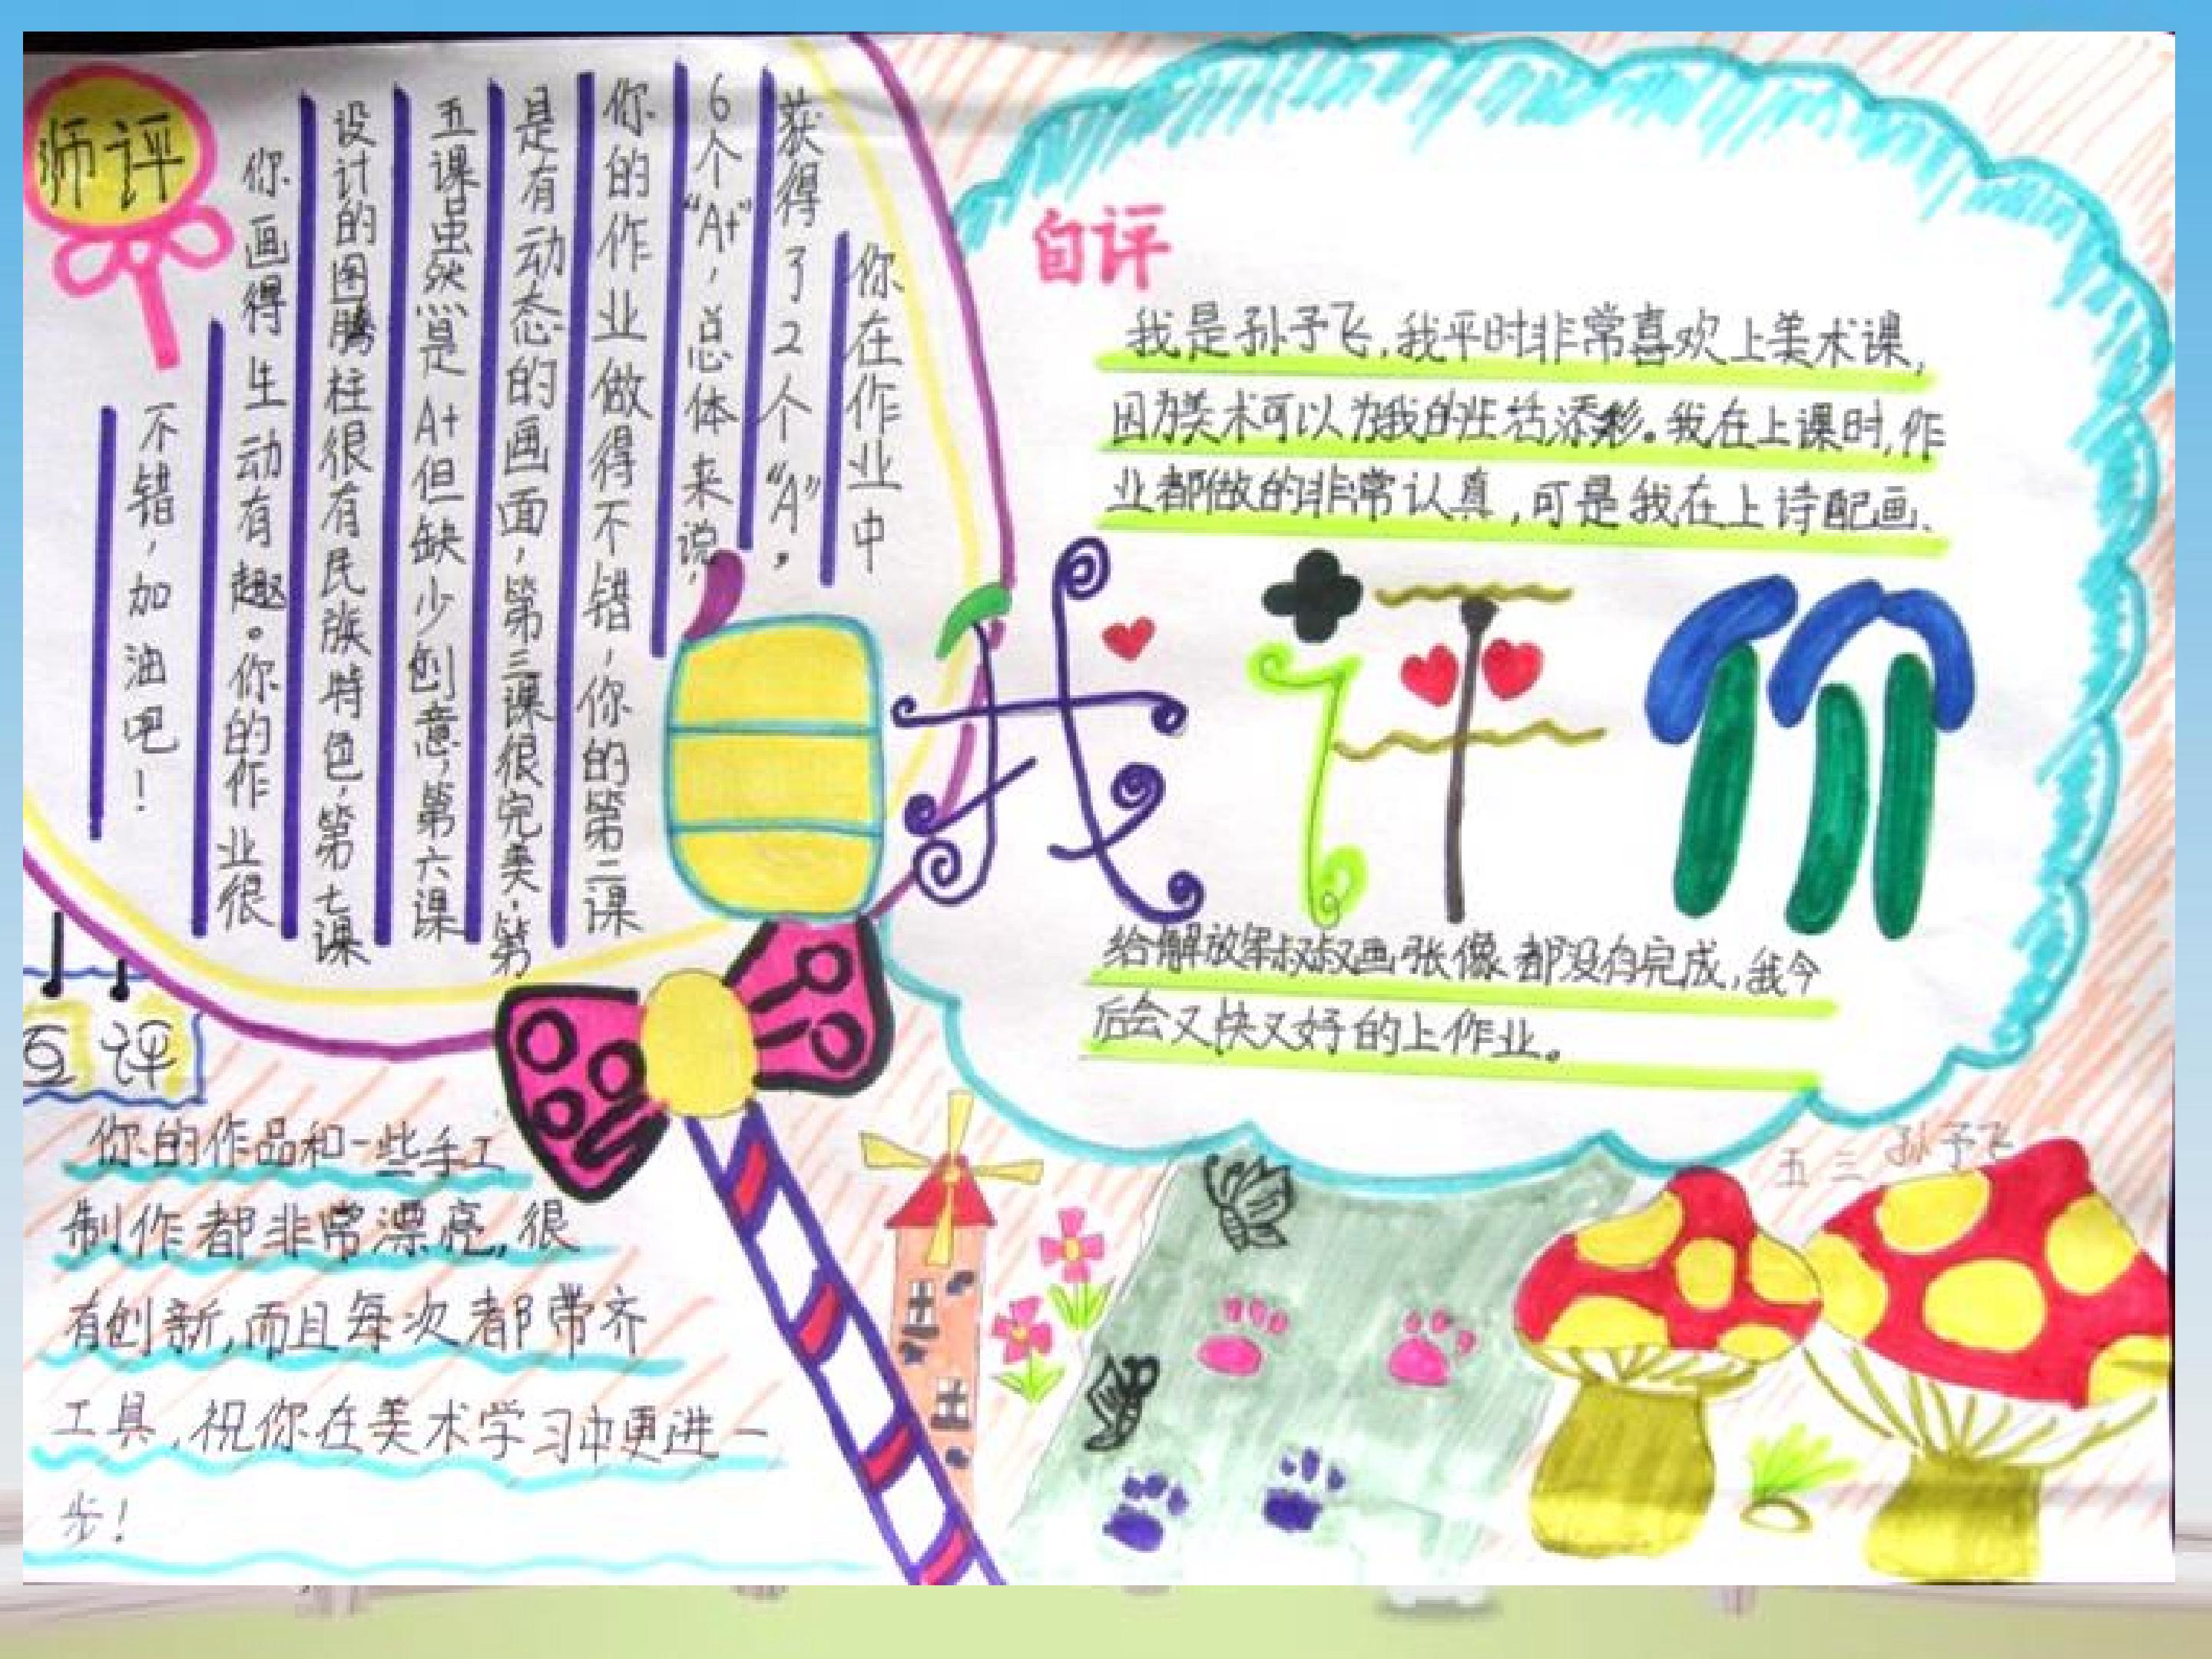 师评
你在作业中
获得了2个“A”。
6个“A+”，总体来说，
你的作业做得不错，你的第二课
是有动态的画面，第三课很完美，第
五课虽然是A+但缺少创意，第六课
设计的图腾柱很有民族特色，第七课
你画得生动有趣。你的作业很
不错，加油吧！
自评
我是孙予飞，我平时非常喜欢上美术课，
因为美术可以为我的生活添彩。我在上课时，作
业都做的非常认真，可是我在上诗配画、
我评价
给解放军叔叔画张像都没有完成，我今
后会又快又好的上作业。
互评
你的作品和一些手工
制作都非常漂亮，很
有创新，而且每次都带齐
工具，祝你在美术学习中更进一
步！
五三 孙予飞